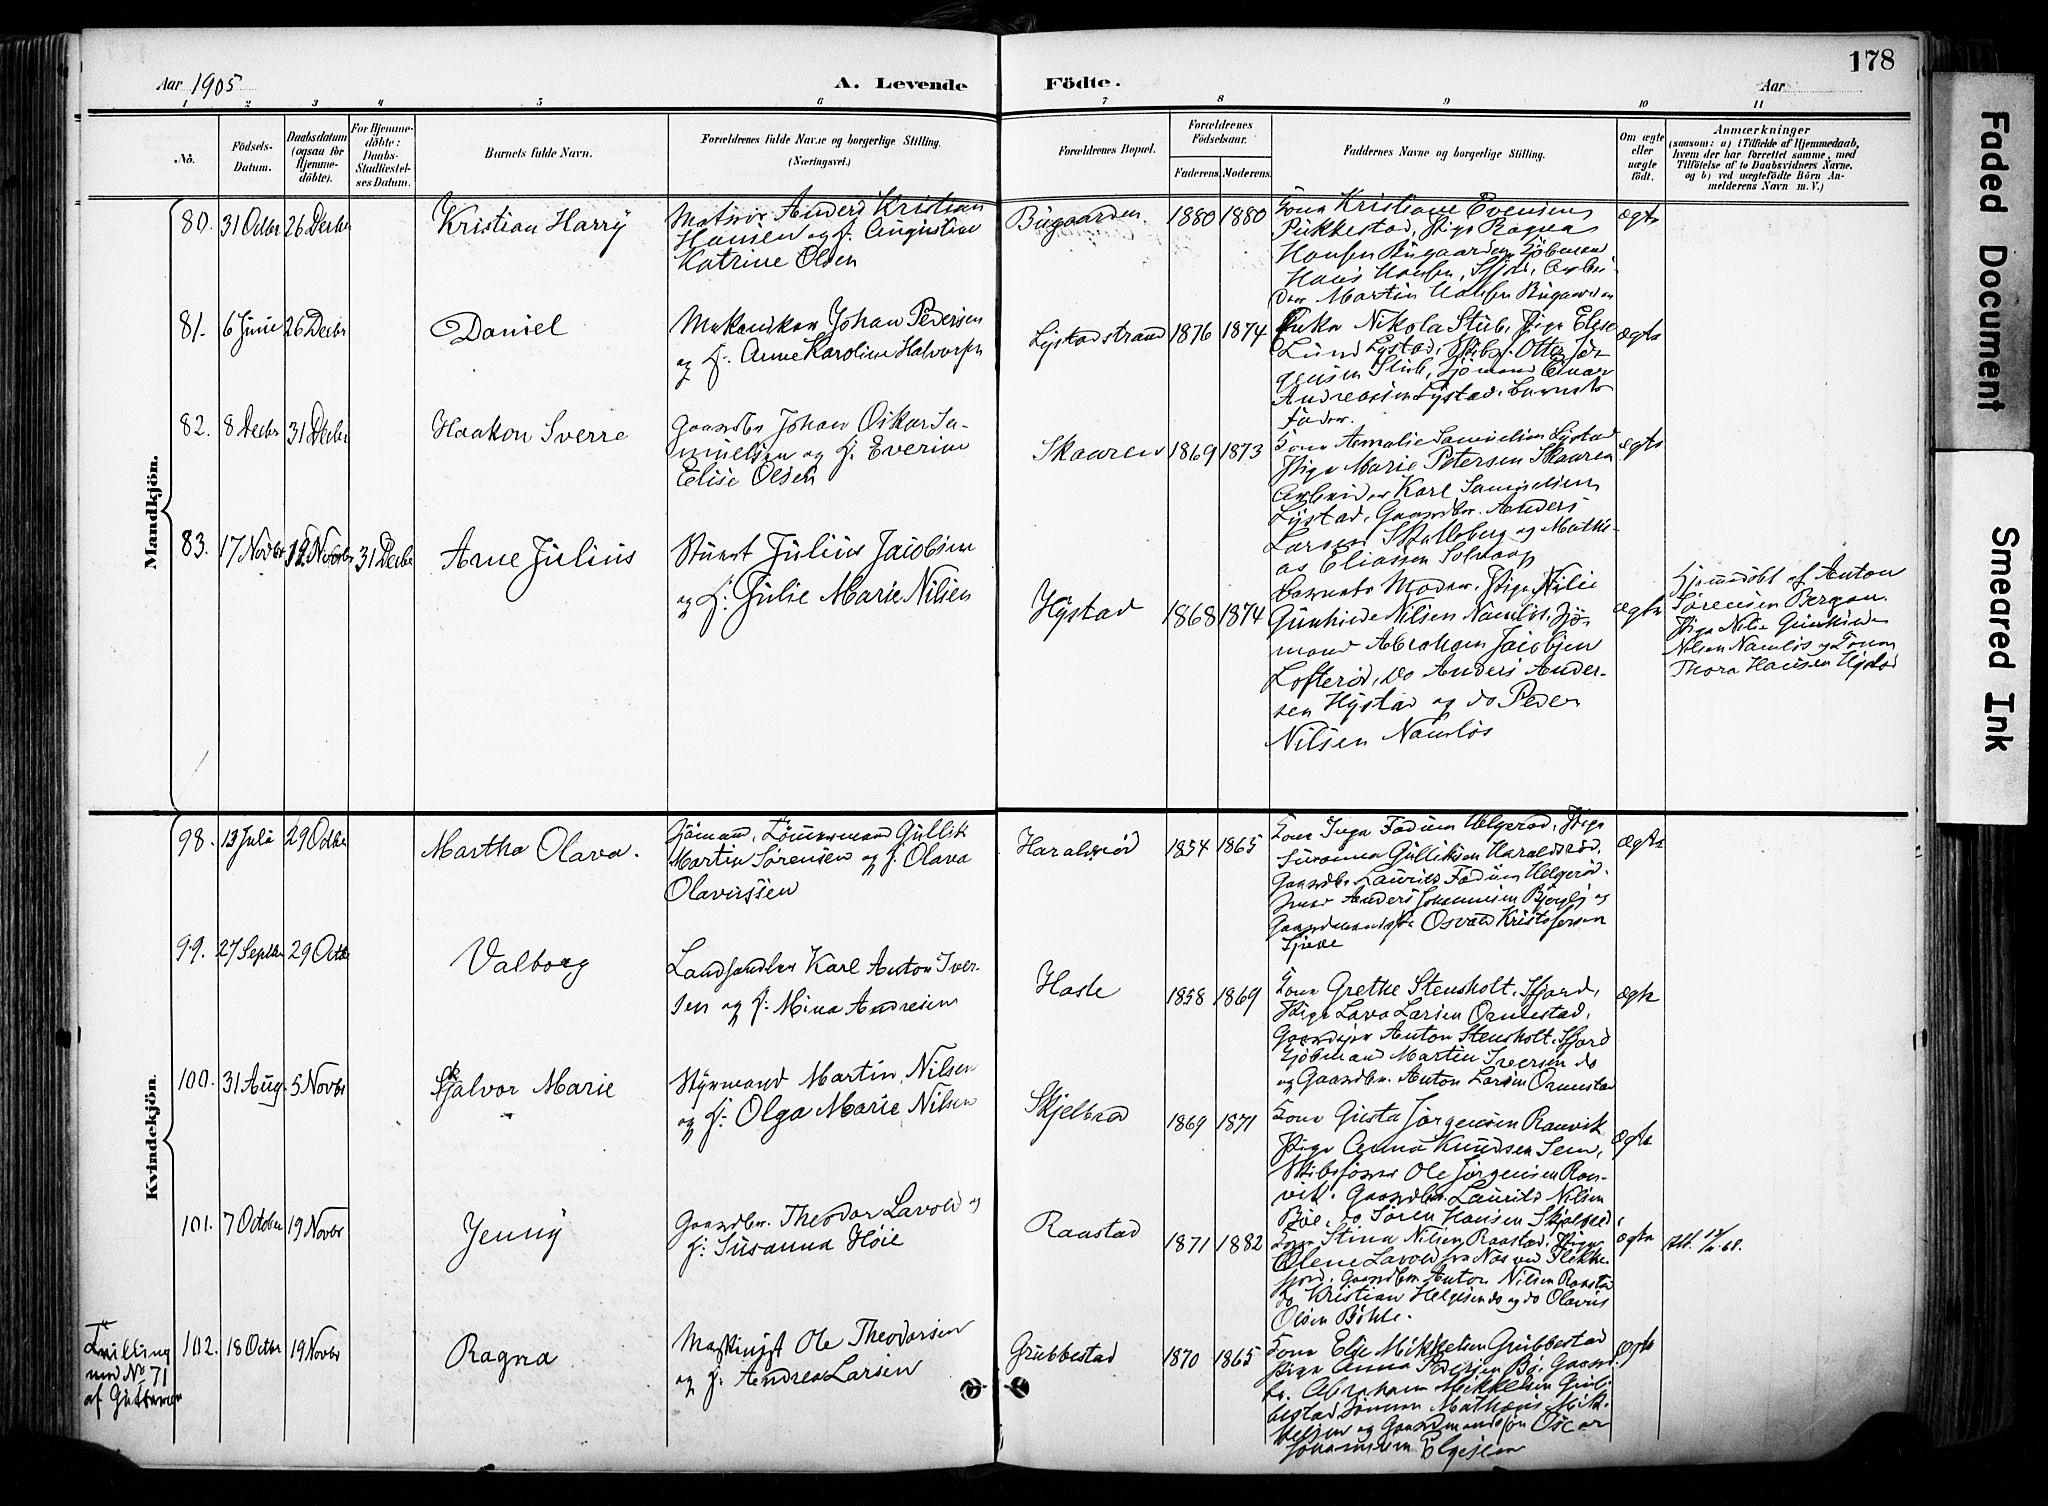 178
Aar 1905
A. Levende Födte.
Aar
1 2 3 4 5 6 7 8 9 10 11
No.
Födsels-
Datum.
Daabsdatum
(ogsaa for
Hjemme-
döbte).
For Hjemme-
döbte:
Daabs-
Stadfæstel-
ses Datum.
Barnets fulde Navn.
Forældrenes fulde Navne og borgerlige Stilling.
(Næringsvei.)
Forældrenes Bopæl.
Forældrenes
Födselsaar.
Faderens. Moderens.
Faddernes Navne og borgerlige Stilling.
Om ægte
eller
uægte
født.
Anmærkninger
(saasom: a) i Tilfælde af Hjemmedaab,
hvem der har forrettet samme, med
Tilföielse af to Daabsvidners Navne,
og b) ved uægtefødte Börn An-
melderens Navn m. V.)
Mandkjön.
80. 31 Octbr 26 Decbr
Kristian Harry
Matros Anders Kristian
Hansen og h. Augustine
Katrine Olsen
Bugaarden
1880 1880
Kone Kristiane Evensen
Pukkestad, Pige Ragna
Hansen Bugaarden, Sjömand
Hans Hansen, Fjord, Arbei-
der Martin Hansen Bugaarden
ægte
81. 6 Juni 26 Decbr
Daniel
Mekaniker Johan Pedersen
og h. Anne Karoline Halvorsen
Lystadstrand
1876 1874
Enke Nikola Stub, Pige Elise
Lund Lystad, Skibsf. Otto Jör-
gensen Stub, Sjömand Einar
Andreassen Lystad, barnets
Fader.
ægte
82. 8 Decbr 31 Decbr
Haakon Sverre
Gaardbr Johan Oskar Sa-
muelsen og h. Everine
Elise Olsen
Skaaren
1869 1873
Kone Amalie Samuelsen Lystad
Pige Marie Petersen Skaaren
Arbeider Karl Samuelsen
Lystad, Gaardbr. Anders
Larsen og Mathi-
as Eliassen
ægte
83. 17 Novbr Novbr 31 Decbr
Arne Julius
Stuert Julius Jacobsen
og h: Julie Marie Nilsen
Hystad
1868 1874
barnets Moder, Pige Nilie
Gunhilde Nilsen Namløs, Sjö-
mand Abraham Jacobsen
Lofterød, do Anders Ander-
sen Hystad og do Peder
Nilsen Namløs
ægte
Hjemmedøbt af Anton
Sørensen Bergan.
Pige Nilie Gunhilde
Nilsen Namløs og Kone
Thora Hansen Hystad
Kvindekjön.
98. 13 Juli 29 Octbr
Martha Olava.
Sjömand, Tømmermand Gullik
Martin Sørensen og h. Olava
Olavussen
Haraldsrød
1854 1865
Kone Inga Fadum Helgerød, Pige
Susanna Gulliksen Haraldsrød,
Gaardbr Laurits Fadum Helgerød.
Anders Johannesen og
Gaardmandss. Osvald Kristofersen
ægte
99. 27 Septbr 29 Octbr
Valborg
Landhandler Karl Anton Iver-
sen og h: Mina Andresen
Hasle
1858 1869
Kone Grethe Stensholt, Fjord,
Pige Lava Larsen Ormestad,
Gaardejer Anton Stensholt, Fjord
Sjömand Martin Iversen do
og Gaardbr. Anton Larsen Ormestad
ægte
100. 31 Aug. 5 Novbr
Hjalvor Marie
Styrmand Martin Nilsen
og h: Olga Marie Nilsen
Skjelbred
1869 1871
Kone Gusta Jørgensen Ranvik
Pige Anna Knudsen Sem,
Skibsfører Ole Jørgensen Ran-
vik. Gaardbr. Laurits Nilsen
Böe, do Søren Hansen Skjelbred
ægte
101. 7 October 19 Novbr
Jenny
Gaardbr. Theodor Lavold og
h: Susanna Höie
Raastad
1871 1882
Kone Stina Nilsen Raastad, Pige
Olene Lavold fra Næs ved Flekke-
fjord, Gaardbr. Anton Nilsen Raastad
do Kristian Helgesen do og do Olavus
Olsen Böhle.
ægte
Att. 68.
Tvilling
med No 71
af Guttene
102. 18 Octbr 19 Novbr
Ragna
Maskinist Ole Theodorsen
og h. Andrea Larsen
Grubbestad
1870 1865
Kone Else Mikkelsen Grubbestad
Pige Anna Pedersen Bö, Gaard-
br. Abraham Mikkelsen Grub-
bestad, Mathæus Mik-
kelsen og Gaardmandssøn Oscar
Johannesen
ægte
Faded Document
Smeared Ink